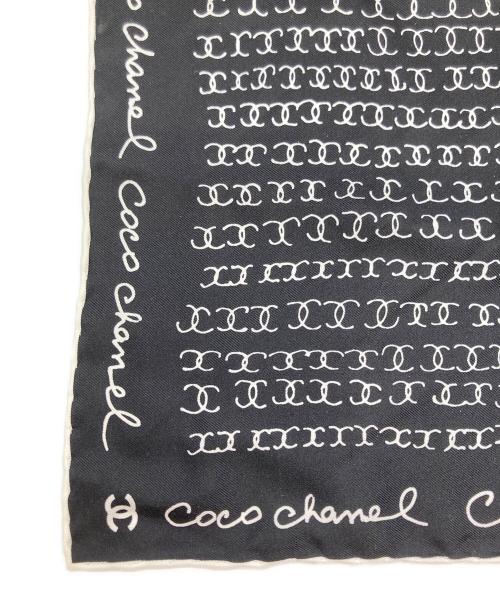 chanel
coco chanel
coco chanel